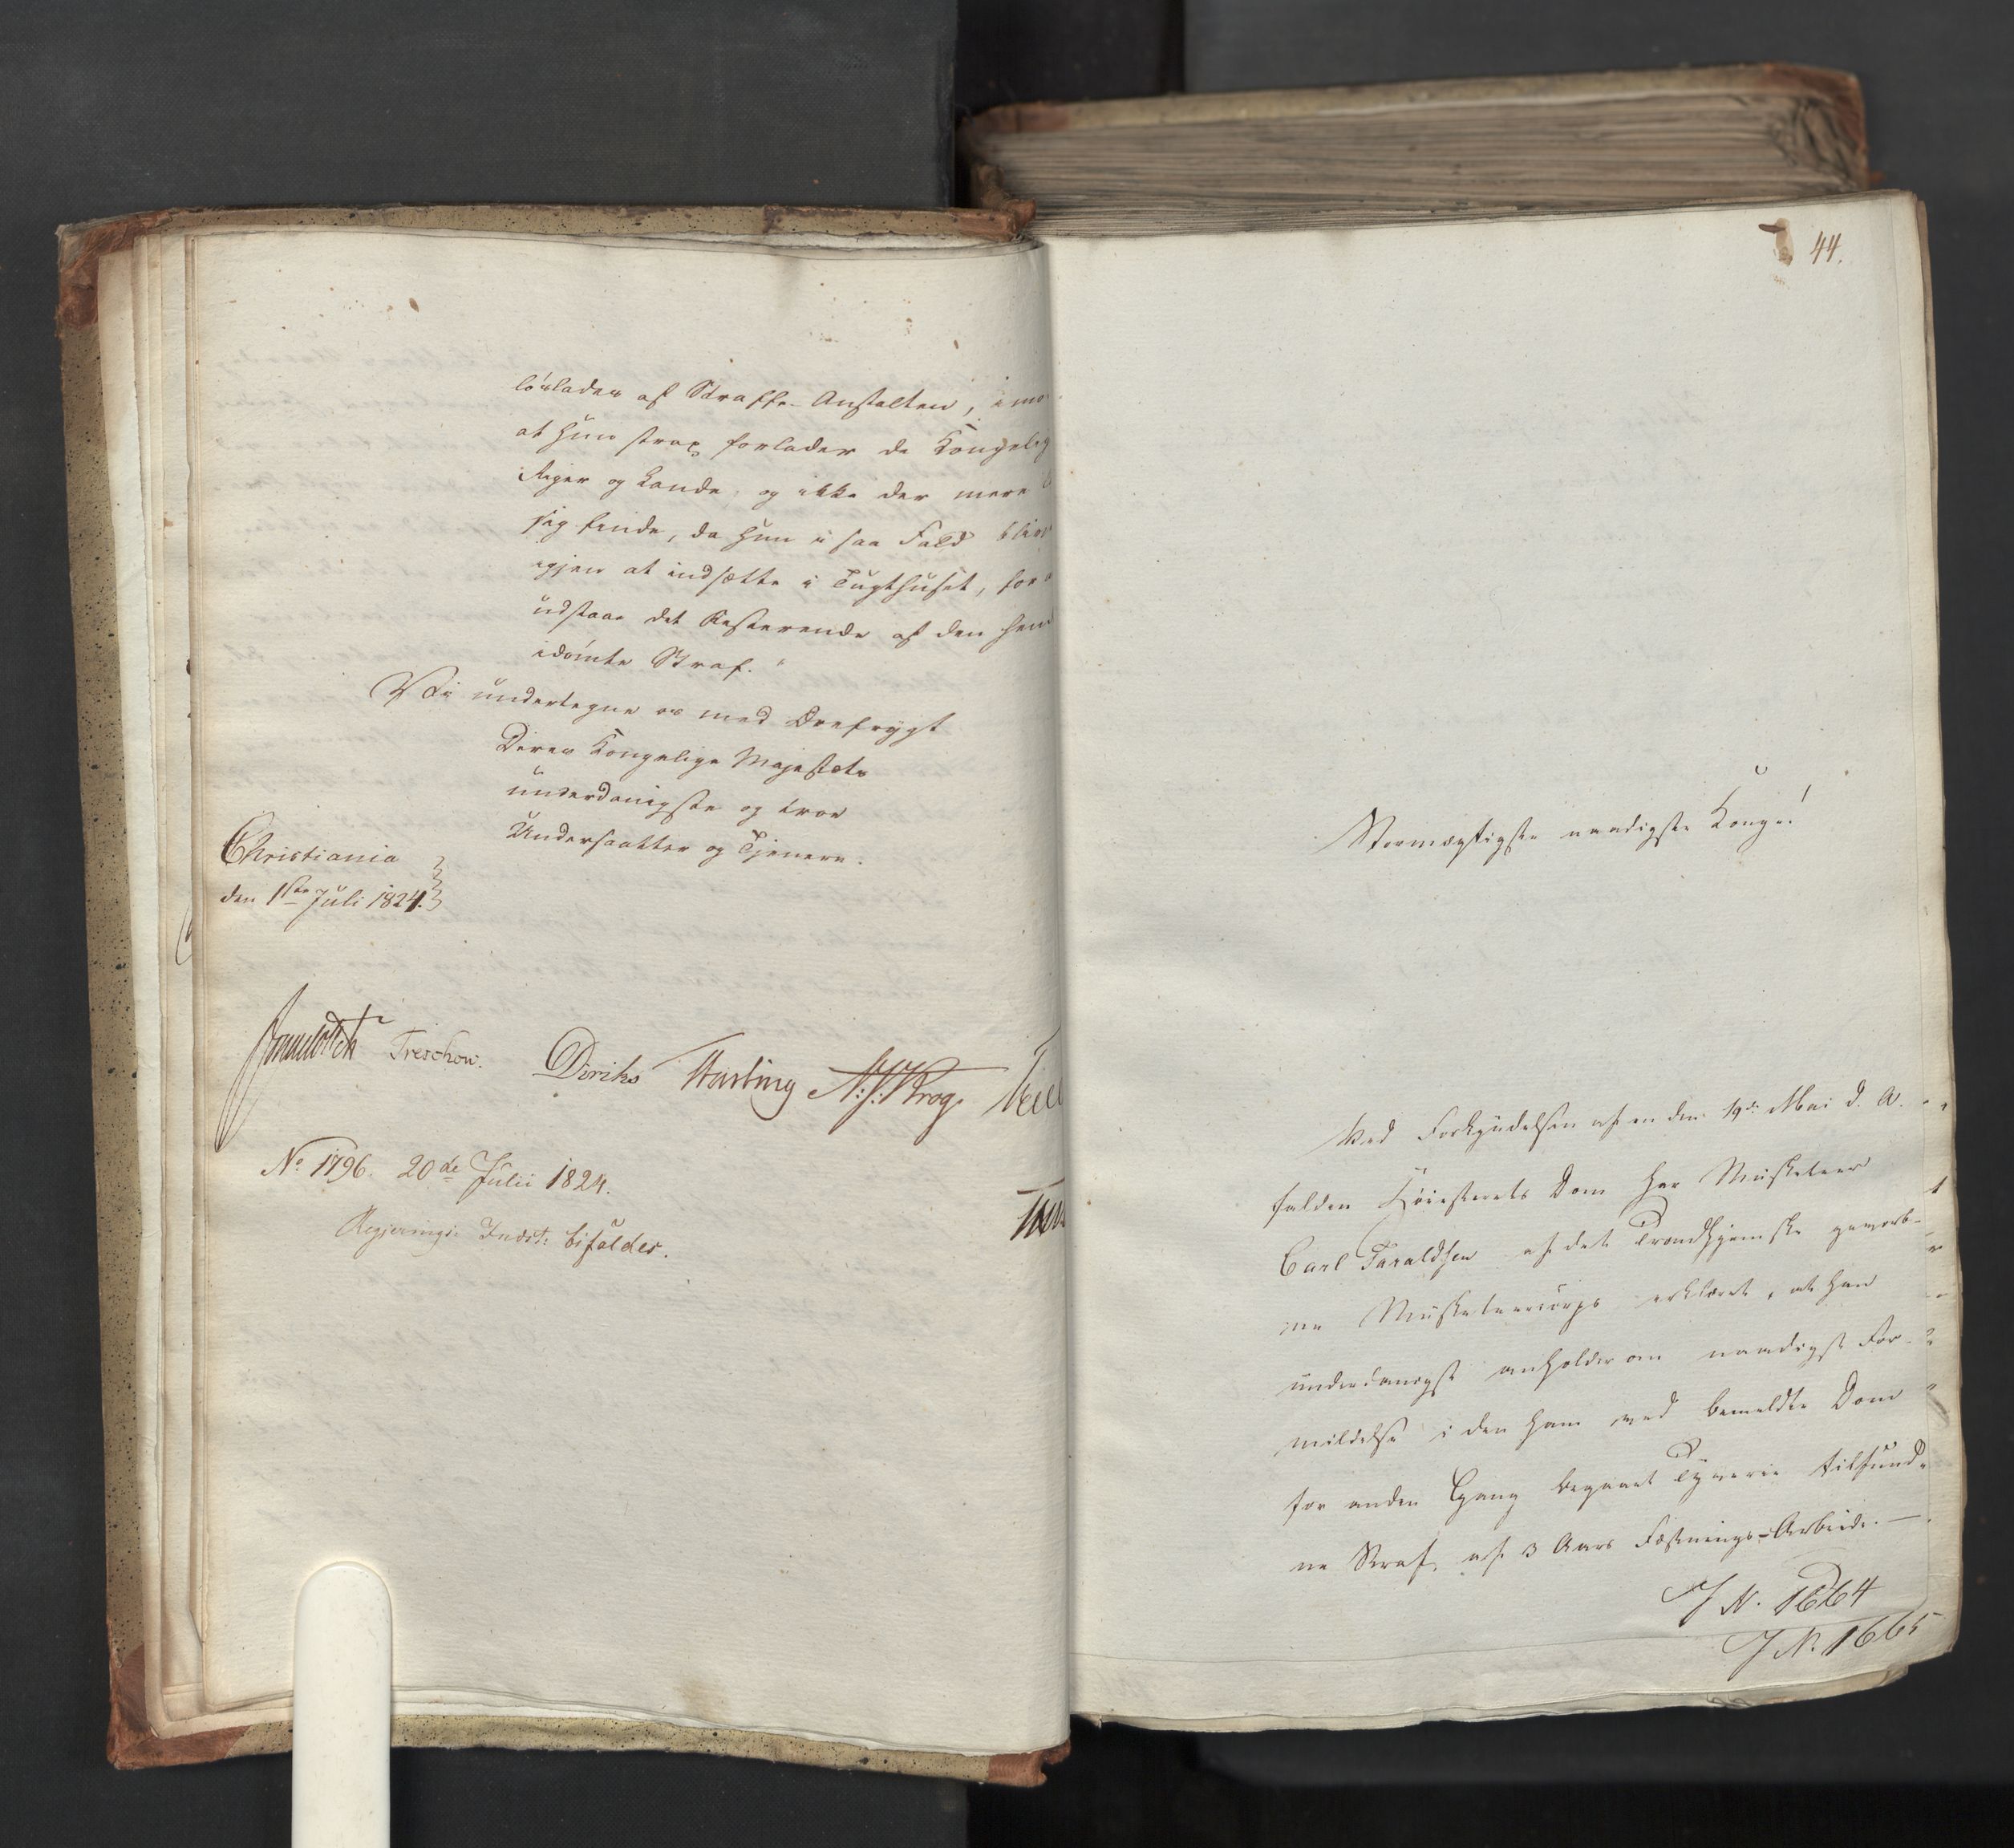 löslades af Straffe-Anstalten, imo
at hun strax forlader de Kongelig
Riger og Lande, og ikke der mere
sig finde, da hun i saa Fald blive
igjen at indsætte i Tugthuset, for
udstaae det Resterende af den hend
idömte Straf."
Vi undertegne os med Ærefrygt
Deres Kongelige Majestæts
underdanigste og troe
Undersaatter og Tjenere.
Christiania
den 1ste Juli 1824.
Treschow. Diriks Hæsting N: J: Krog.
No 1796. 20de Julii 1824.
Regjerings: Indst: bifaldes.
44.
Stormægtigste naadigste Konge!
Ved Forkyndelsen af en den 19de Mai d. A.
falden Höiesterets Dom har Musketeer
Carl Taraldsen af det Trondhjemske gevorb-
ne Musketeercorps erklæret, at han
underdanigst anholder om naadigst For-
mildelse i den ham ved bemeldte Dom
for anden Gang begaaet Tyverie tilfund-
ne Straf af 3 Aars Fæstnings-Arbeide. —
J N. 1664
J N. 1665